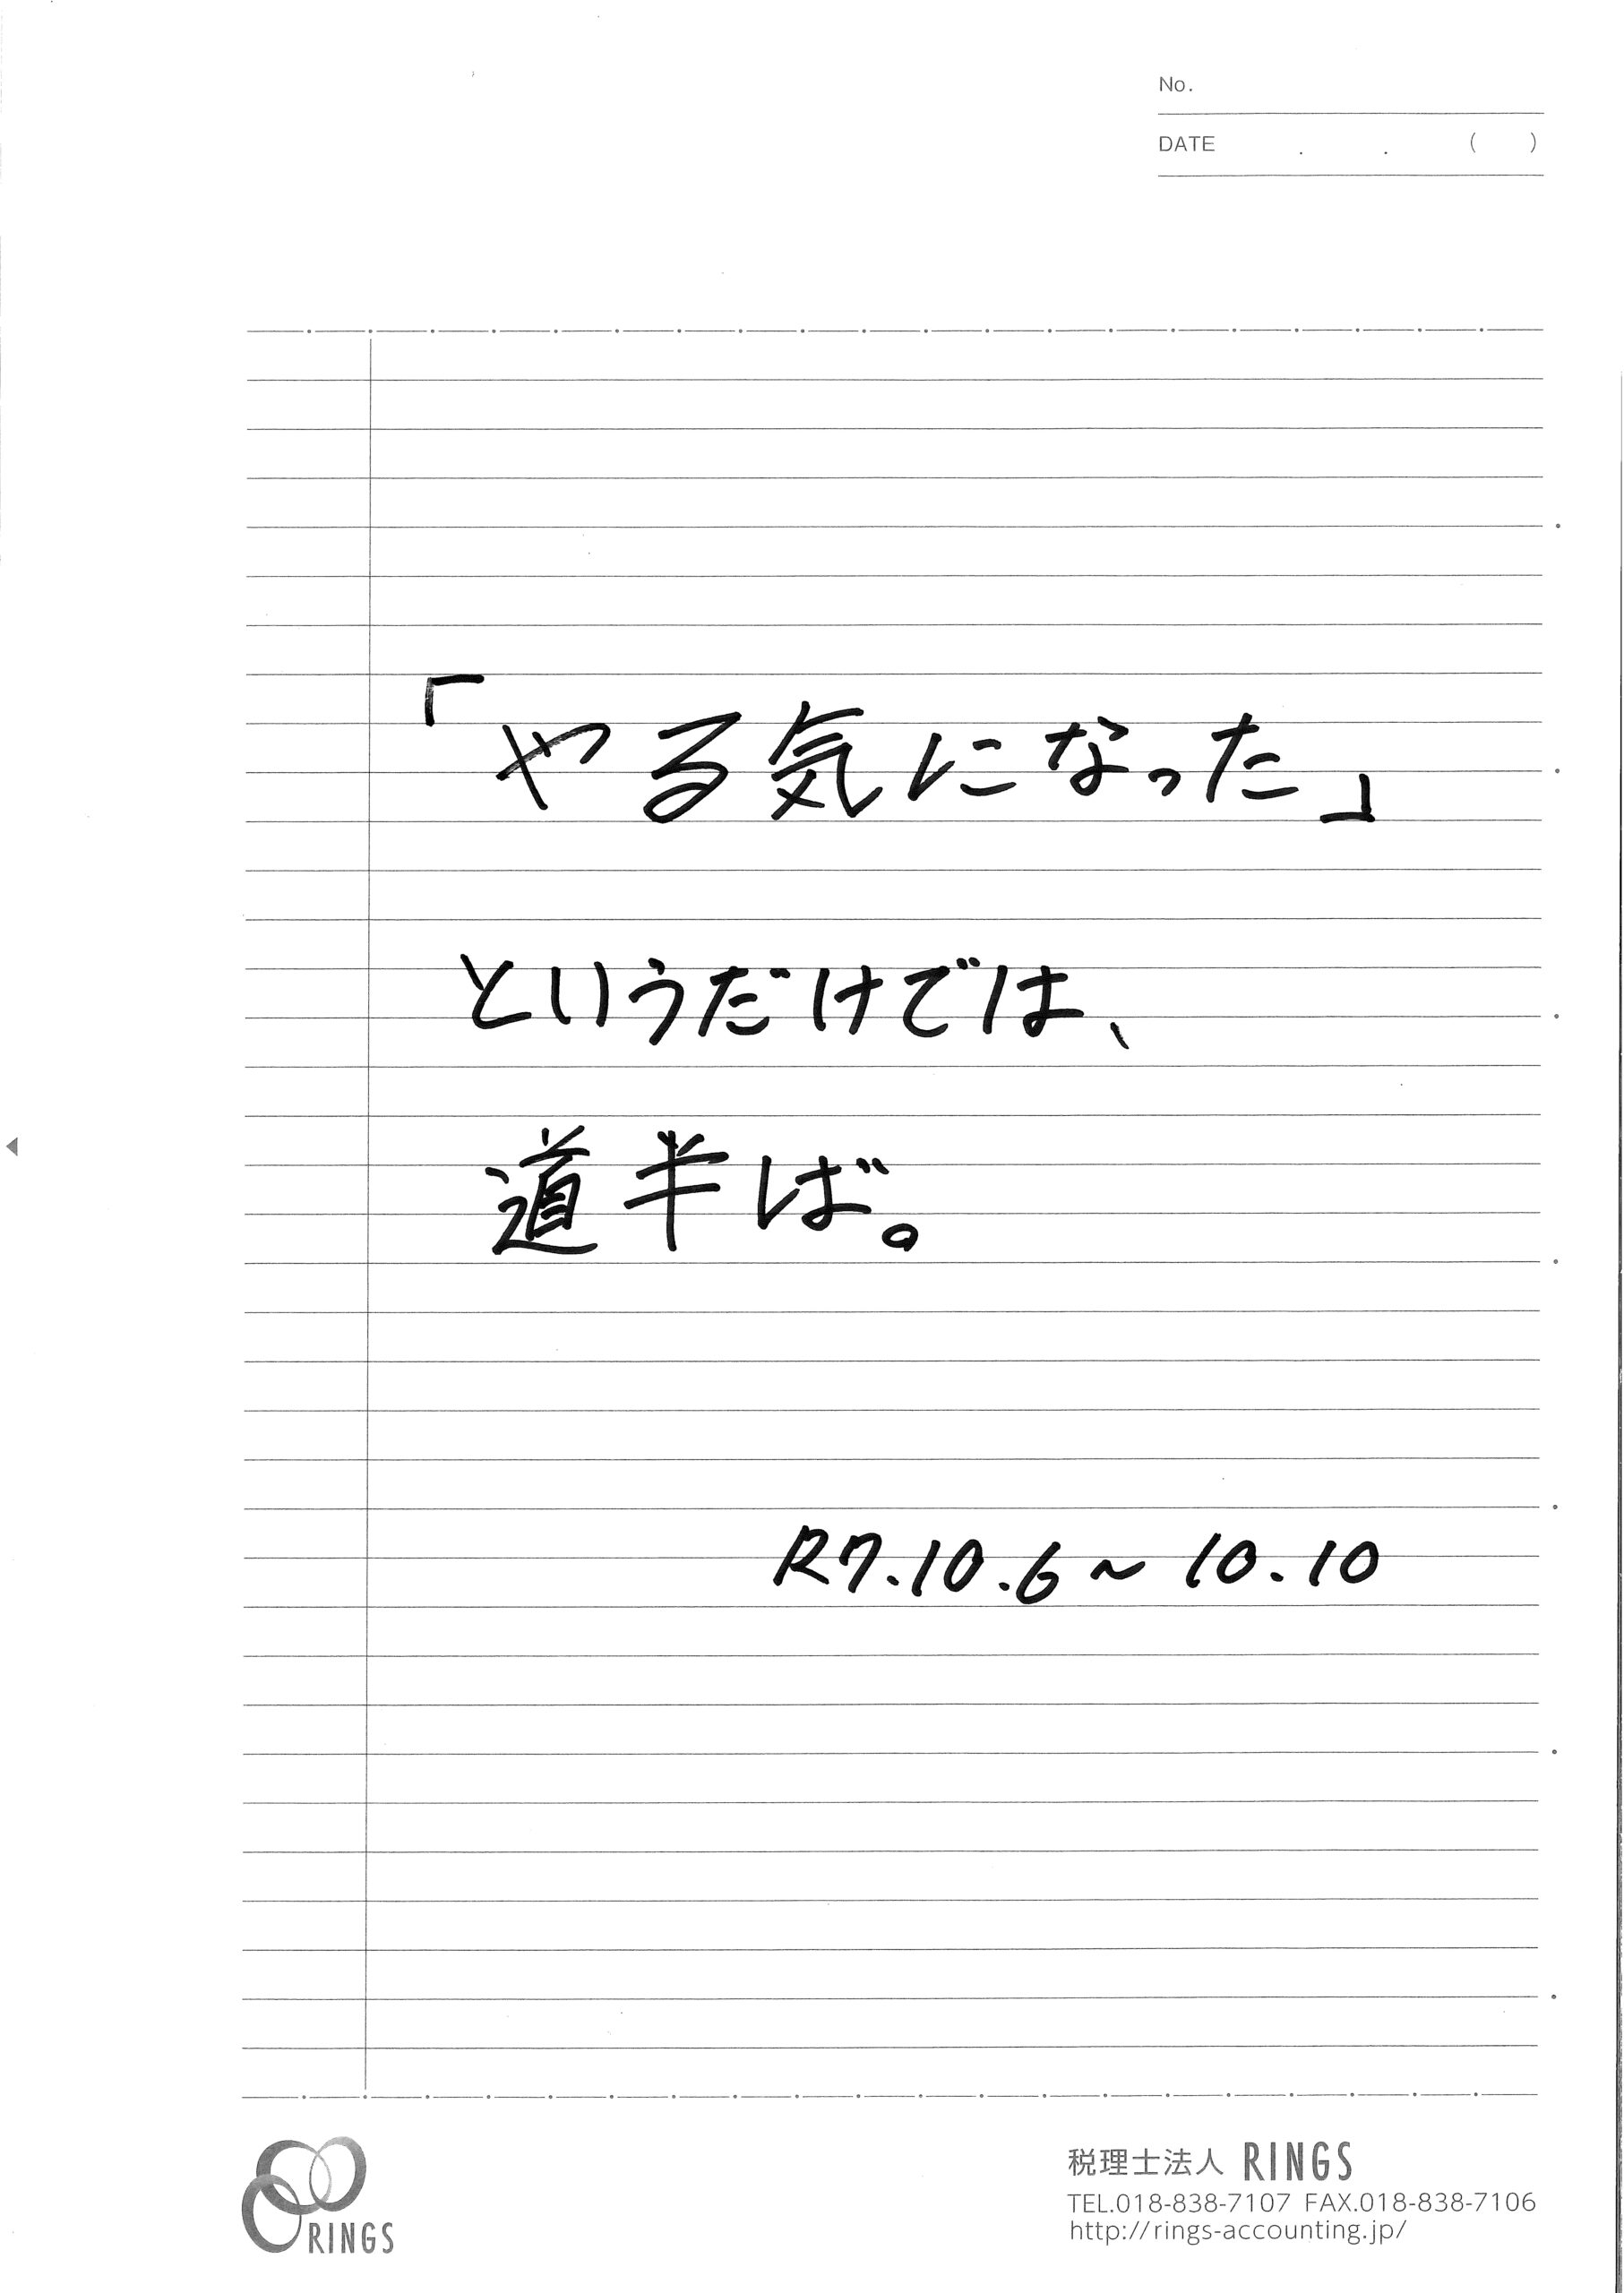 No.
DATE . . ( )
「やる気になった」
というだけでは、
道半ば。
R7.10.6~10.10
RINGS
税理士法人 RINGS
TEL.018-838-7107 FAX.018-838-7106
http://rings-accounting.jp/